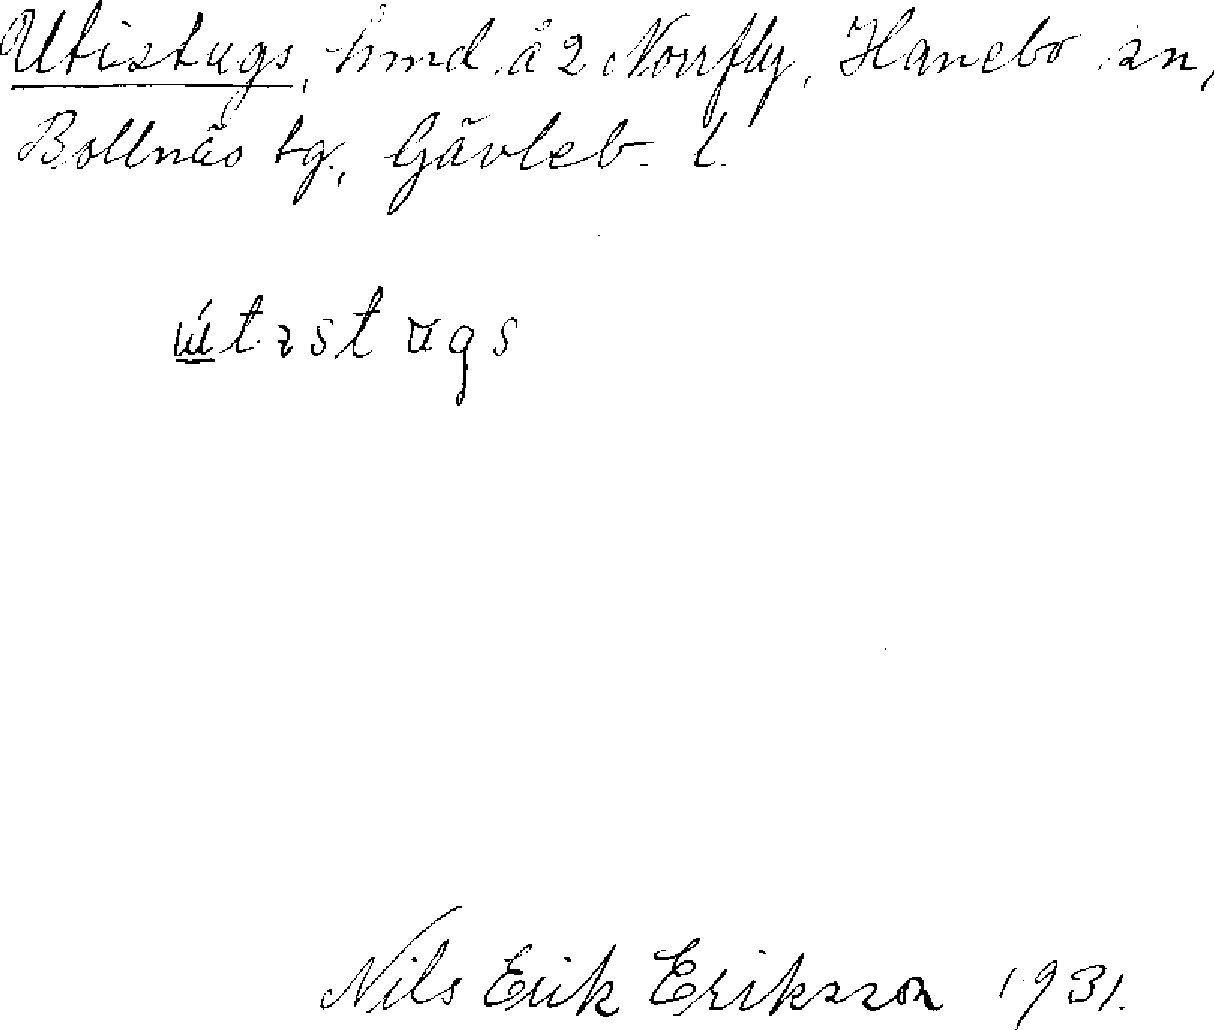 Utistugs, hmd å 2 Norrfly, Hanebo sn,
Bollnäs tg., Gävleb. l.
Nils Erik Eriksson 1931.